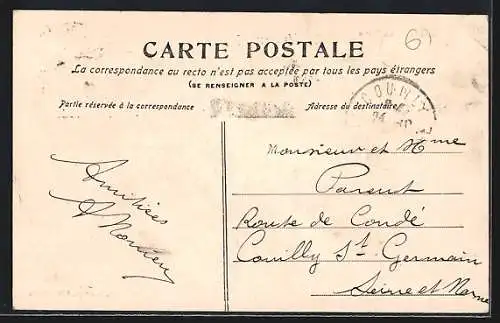 69
CARTE POSTALE
La correspondance au recto n'est pas acceptée par tous les pays étrangers
(SE RENSEIGNER A LA POSTE)
Partie réservée à la correspondance
Adresse du destinataire
COUILLY
Monsieur et Mme
Parent
Route de Condé
Couilly St Germain
Seine et Marne
Amitiés